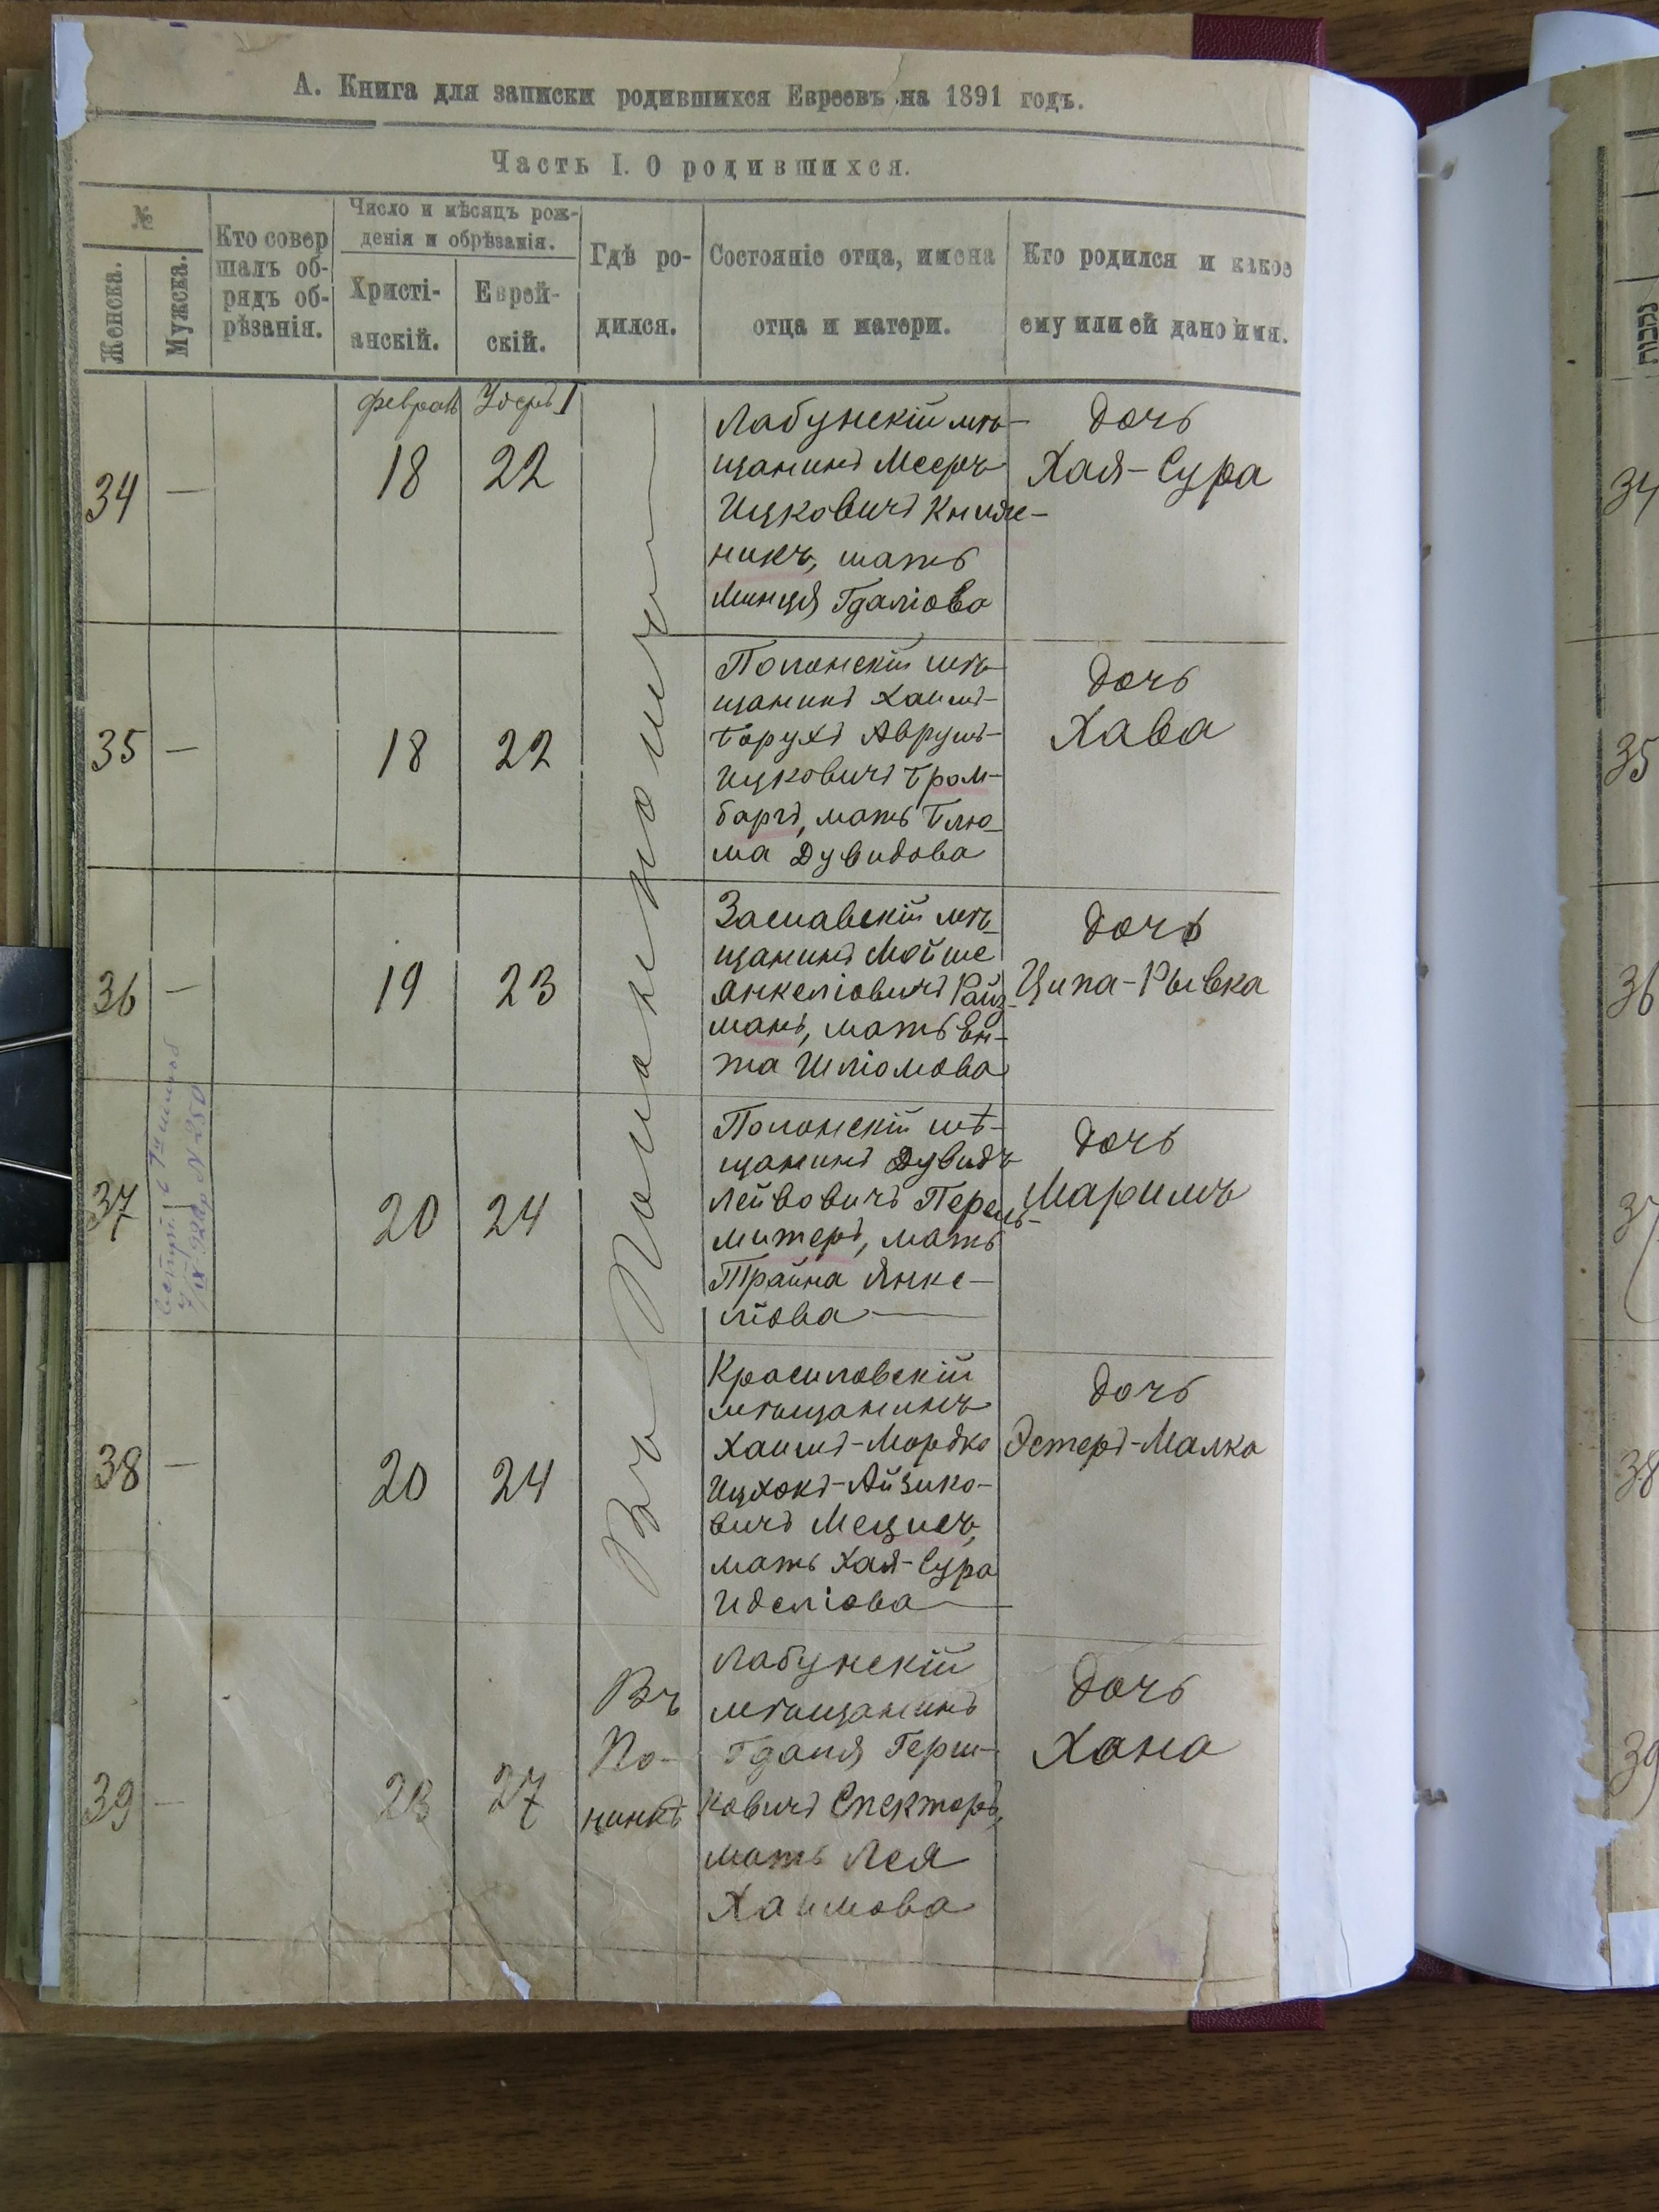 А. Книга для записки родившихся Евреевъ на 1891 годъ.
Часть I. О родившихся.
№
Женска.
Мужска.
Кто совер
шалъ об-
рядъ об-
рѣзанія.
Число и мѣсяцъ рож-
денія и обрѣзанія.
Христі-
анскій.
Еврей-
скій.
Гдѣ ро-
дился.
Состояніе отца, имена
отца и матери.
Кто родился и какое
ему или ей дано имя.
Въ Полонномъ
34
—
18
22
Лабунскій мѣ-
щанинъ Мееръ
Ицковичъ Книж-
никъ, мать
Минця Гдаліова
Дочь
Хая-Сура
35
—
18
22
Полонскій мѣ-
щанинъ Хаимъ-
Борухъ Аврумъ-
Ицковичъ Бром-
баргъ, мать Блю-
ма Дувидова
Дочь
Хава
36
—
19
23
Заславскій мѣ-
щанинъ Мойше
Янкеліовичъ Райз-
манъ, мать Ен-
та Шліомова
Дочь
Ципа-Рывка
37
20
24
Полонскій мѣ-
щанинъ Дувидъ
Лейвовичъ Перель-
митеръ, мать
Трайна Янке-
ліова
Дочь
Маримъ
38
—
20
24
Красиловскій
мѣщанинъ
Хаимъ-Мордко
Ицхокъ-Айзико-
вичъ Мецисъ,
мать Хая-Сура
Иделіова
Дочь
Эстеръ-Малка
39
—
23
27
Въ
По-
нинкѣ
Лабунскій
мѣщанинъ
Гдаля Герш-
ковичъ Спекторъ,
мать Лея
Хаимова
Дочь
Хана
34
35
36
37
38
39